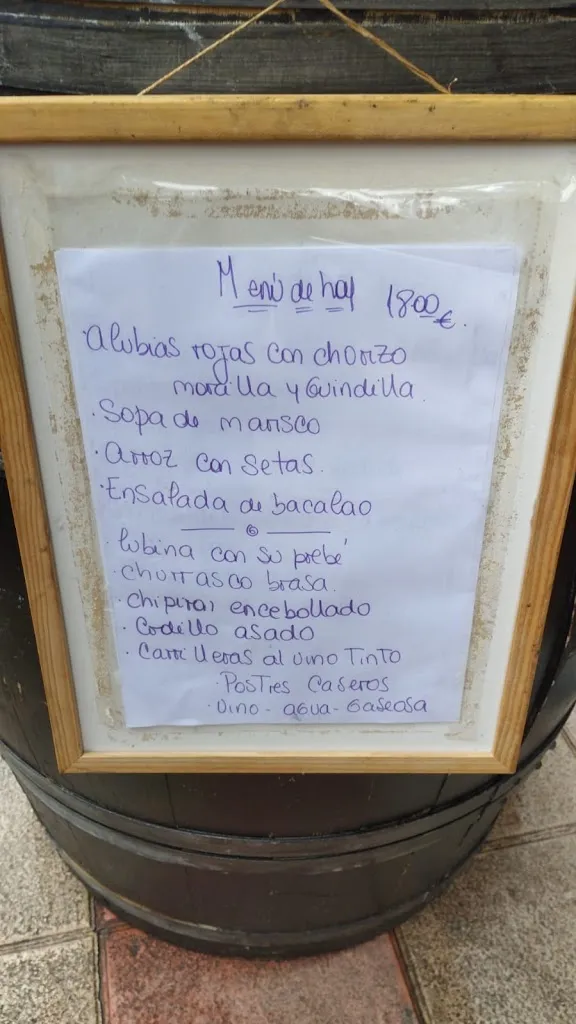 Menú de hoy 1800€.
·Alubias rojas con chorizo
morcilla y Guindilla.
·Sopa de marisco
·arroz con setas.
·Ensalada de bacalao
·lubina con su prebé
·churrasco brasa.
·chipiron encebollado
·Codillo asado
·Carrilleras al vino Tinto
·Postres Caseros
·Vino - agua - Gaseosa